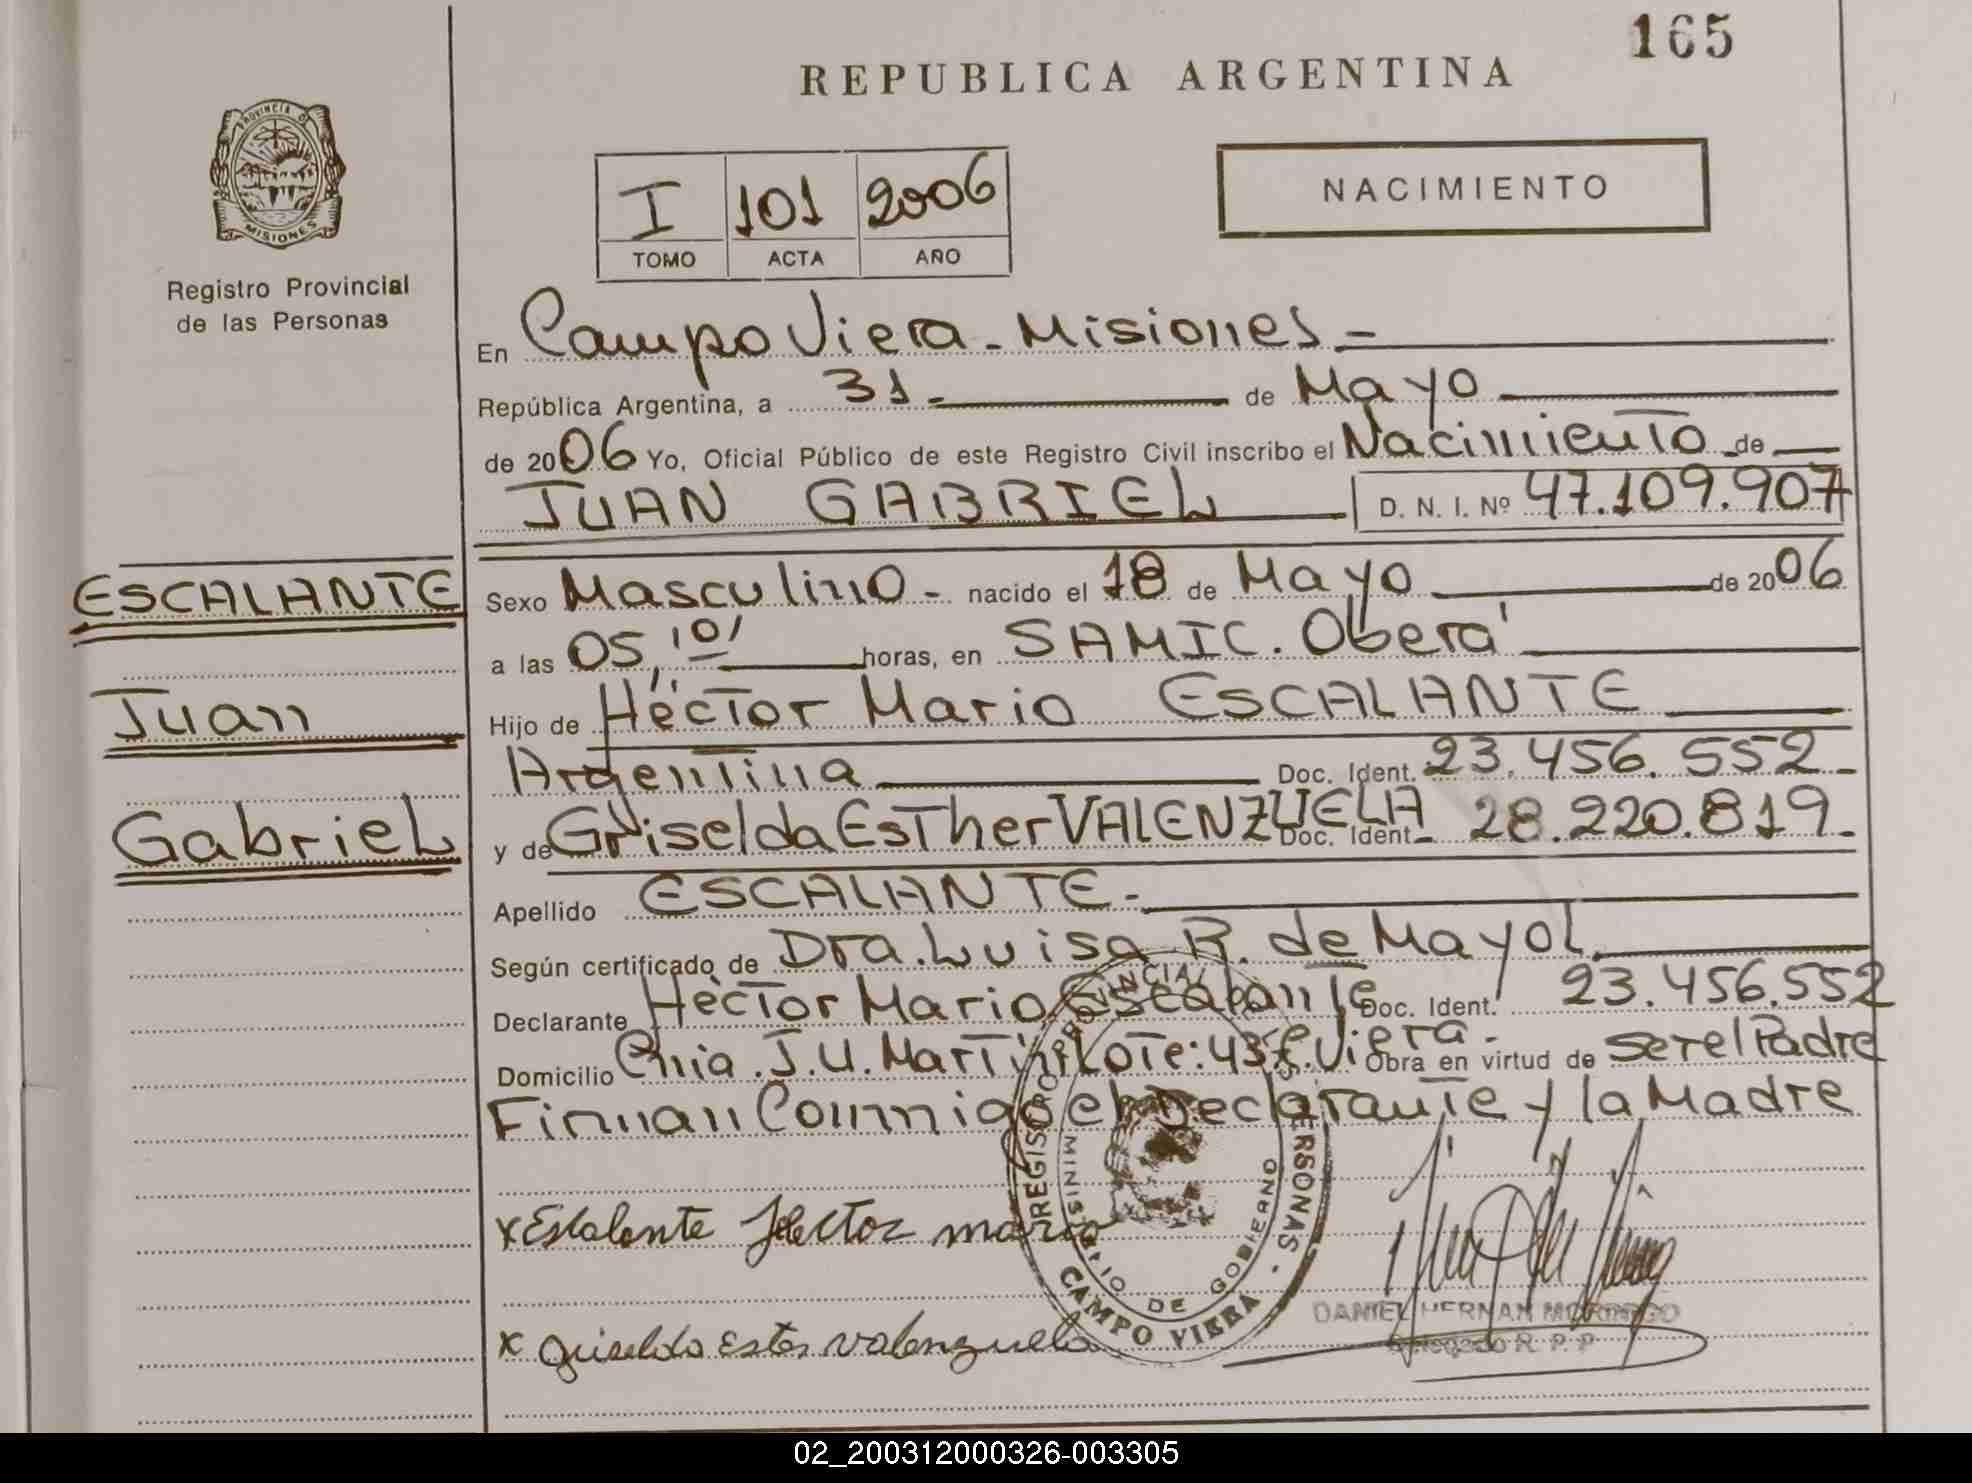 165
REPUBLICA ARGENTINA
PROVINCIA DE
MISIONES
Registro Provincial
de las Personas
I 101 2006
TOMO ACTA AÑO
NACIMIENTO
En Campo Viera - Misiones -
República Argentina, a 31 - de Mayo
de 2006 Yo, Oficial Público de este Registro Civil inscribo el Nacimiento de
JUAN GABRIEL D. N. I. Nº 47.109.907
ESCALANTE
Juan
Gabriel
Sexo Masculino - nacido el 18 de Mayo de 2006
a las 05,10' horas, en SAMIC. Oberá
Hijo de Héctor Mario ESCALANTE
Argentina Doc. Ident. 23.456.552 -
y de Griselda Esther VALENZUELA Doc. Ident. 28.220.819 -
Apellido ESCALANTE -
Según certificado de Dra. Luisa R. de Mayol
Declarante Héctor Mario Escalante Doc. Ident. 23.456.552
Domicilio J.U. Martin Lote: 43 C. Viera - Obra en virtud de ser el Padre
Firman Conmigo el Declarante y la Madre
x Escalante Hector mario
x Griselda Ester Valenzuela
REGISTRO PROVINCIAL DE LAS PERSONAS - CAMPO VIERA
MINISTERIO DE GOBIERNO
DANIEL HERNAN
Delegado R. P. P.
02_200312000326-003305